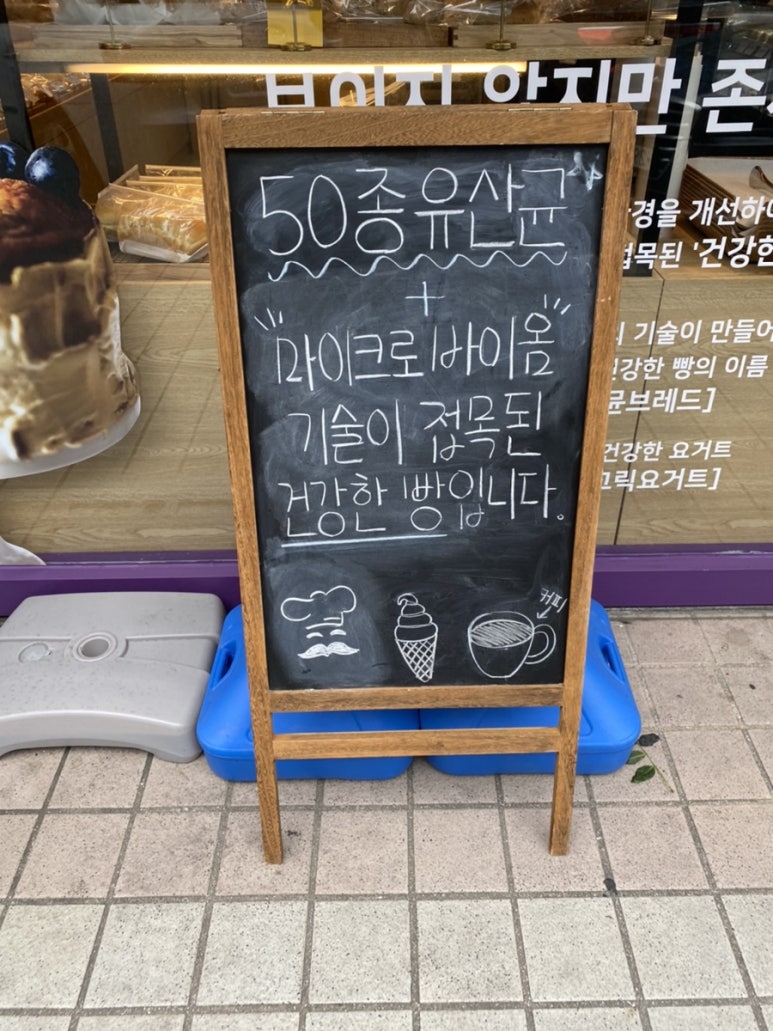 보이지 않지만 존
50종유산균
+
"마이크로바이옴"
기술이 접목된
건강한 빵입니다.
커피
경을 개선하
접목된 '건강한
기술이 만들어
건강한 빵의 이름
균브레드]
건강한 요거트
그릭요거트]